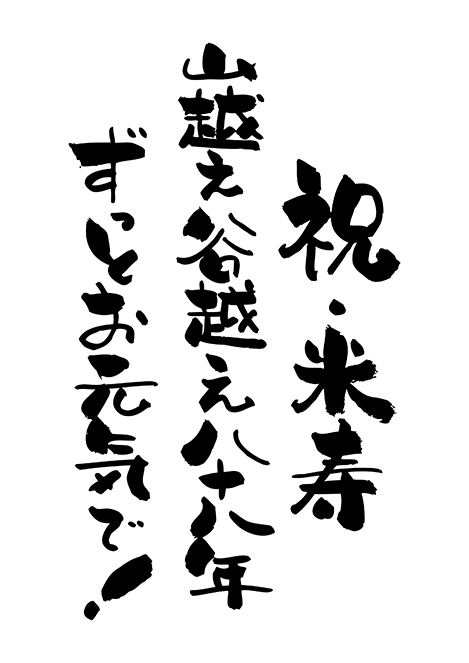 祝・米寿
山越え谷越え八十八年
ずっとお元気で!